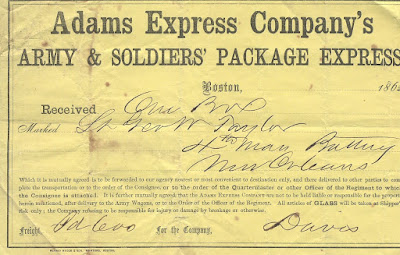 Adams Express Company's
ARMY & SOLDIERS' PACKAGE EXPRESS
Boston, 186
Received One Box
Marked Lt Geo W Taylor
4th Mass Battery
New Orleans
Which it is mutually agreed is to be forwarded to our agency nearest or most convenient to destination only, and there delivered to other parties to com-
plete the transportation or to the order of the Consignee, or to the order of the Quartermaster or other Officer of the Regiment to which
the Consignee is attached. It is further mutually agreed that the ADAMS EXPRESS COMPANY are not to be held liable or responsible for the property
herein mentioned, after delivery to the Army Wagons, or to the Order of the Officer of the Regiment. All articles of GLASS will be taken at Shipper
risk only; the Company refusing to be responsible for injury or damage by breakage or otherwise.
Freight, Pd For the Company, Davis